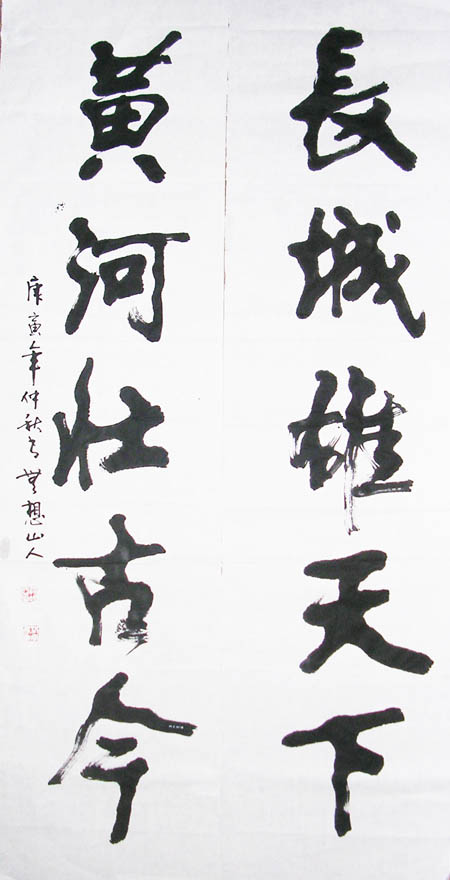 長城雄天下
黃河壮古今
庚寅年仲秋月無想山人